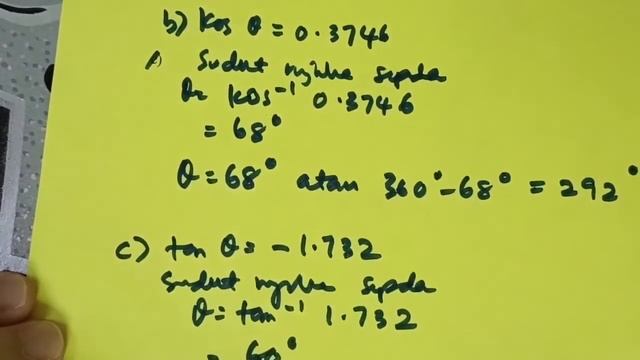 b) kos θ = 0.3746
Sudut sepada
θ = kos⁻¹ 0.3746
= 68°
θ = 68° atau 360° - 68° = 292°
c) tan θ = - 1.732
Sudut sepada
θ = tan⁻¹ 1.732
= 60°